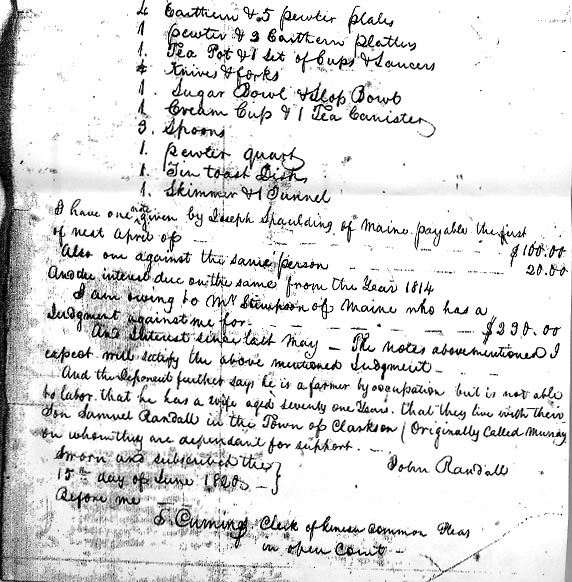 4 Earthern & 5 pewter plates
1 pewter & 3 Earthern Platters
1. Tea Pot & 1 Set of Cups & Saucers
4 Knives & forks
1. Sugar Bowl & Slop Bowl
1. Cream Cup & 1 Tea Canister
3. Spoons
1. pewter quart
1. Tin toast Dish
1. Skimmer & 1 Tunnel
I have one note given by Joseph Spaulding of Maine payable the first
of next April of — $100.00
Also one against the same person — 20.00
And the interest due on the same from the Year 1814
I am owing to Mr Stimpson of Maine who has a
Judgment against me for — $230.00
And Interest since last May — The notes abovementioned I
expect will satisfy the above mentioned Judgment —
And the Deponent further says he is a farmer by occupation but is not able
to labor. that he has a wife aged seventy one Years. that they live with their
Son Samuel Randall in the Town of Clarkson / Originally Called Murray
on whom they are dependant for support. —
Sworn and subscribed the } John Randall
15th day of June 1820 —
Before me
S. Cuming Clerk of Genesee Common Pleas
in open Court —